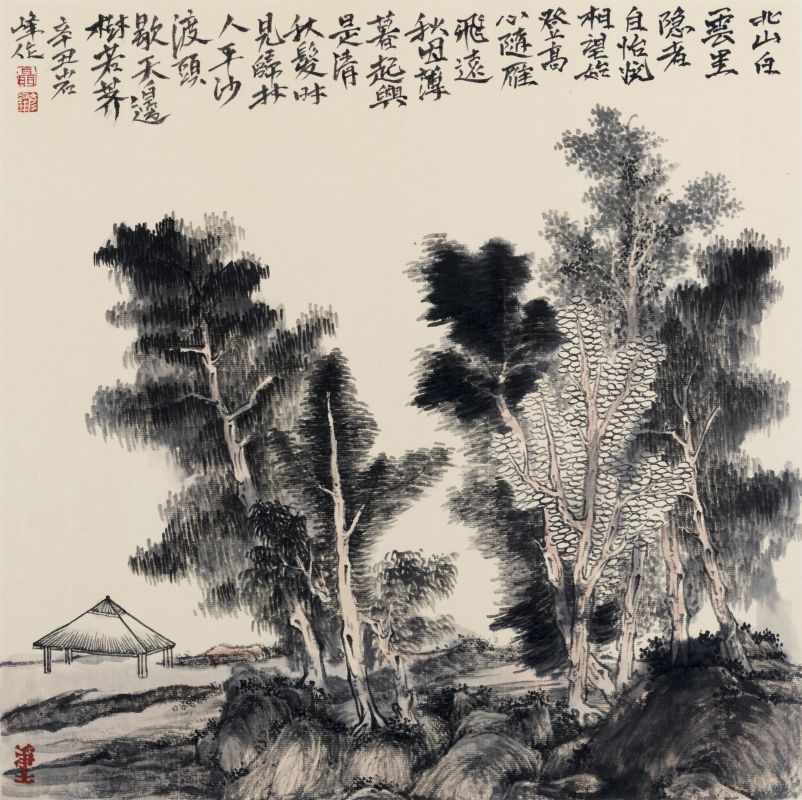 北山白
雲里
隐者
自怡悦
相望始
登高
心隨雁
飛遠
秋因薄
暮起興
是清
秋髮时
見歸村
人平沙
渡頭
歇天邊
樹若薺
辛丑岩
峰作